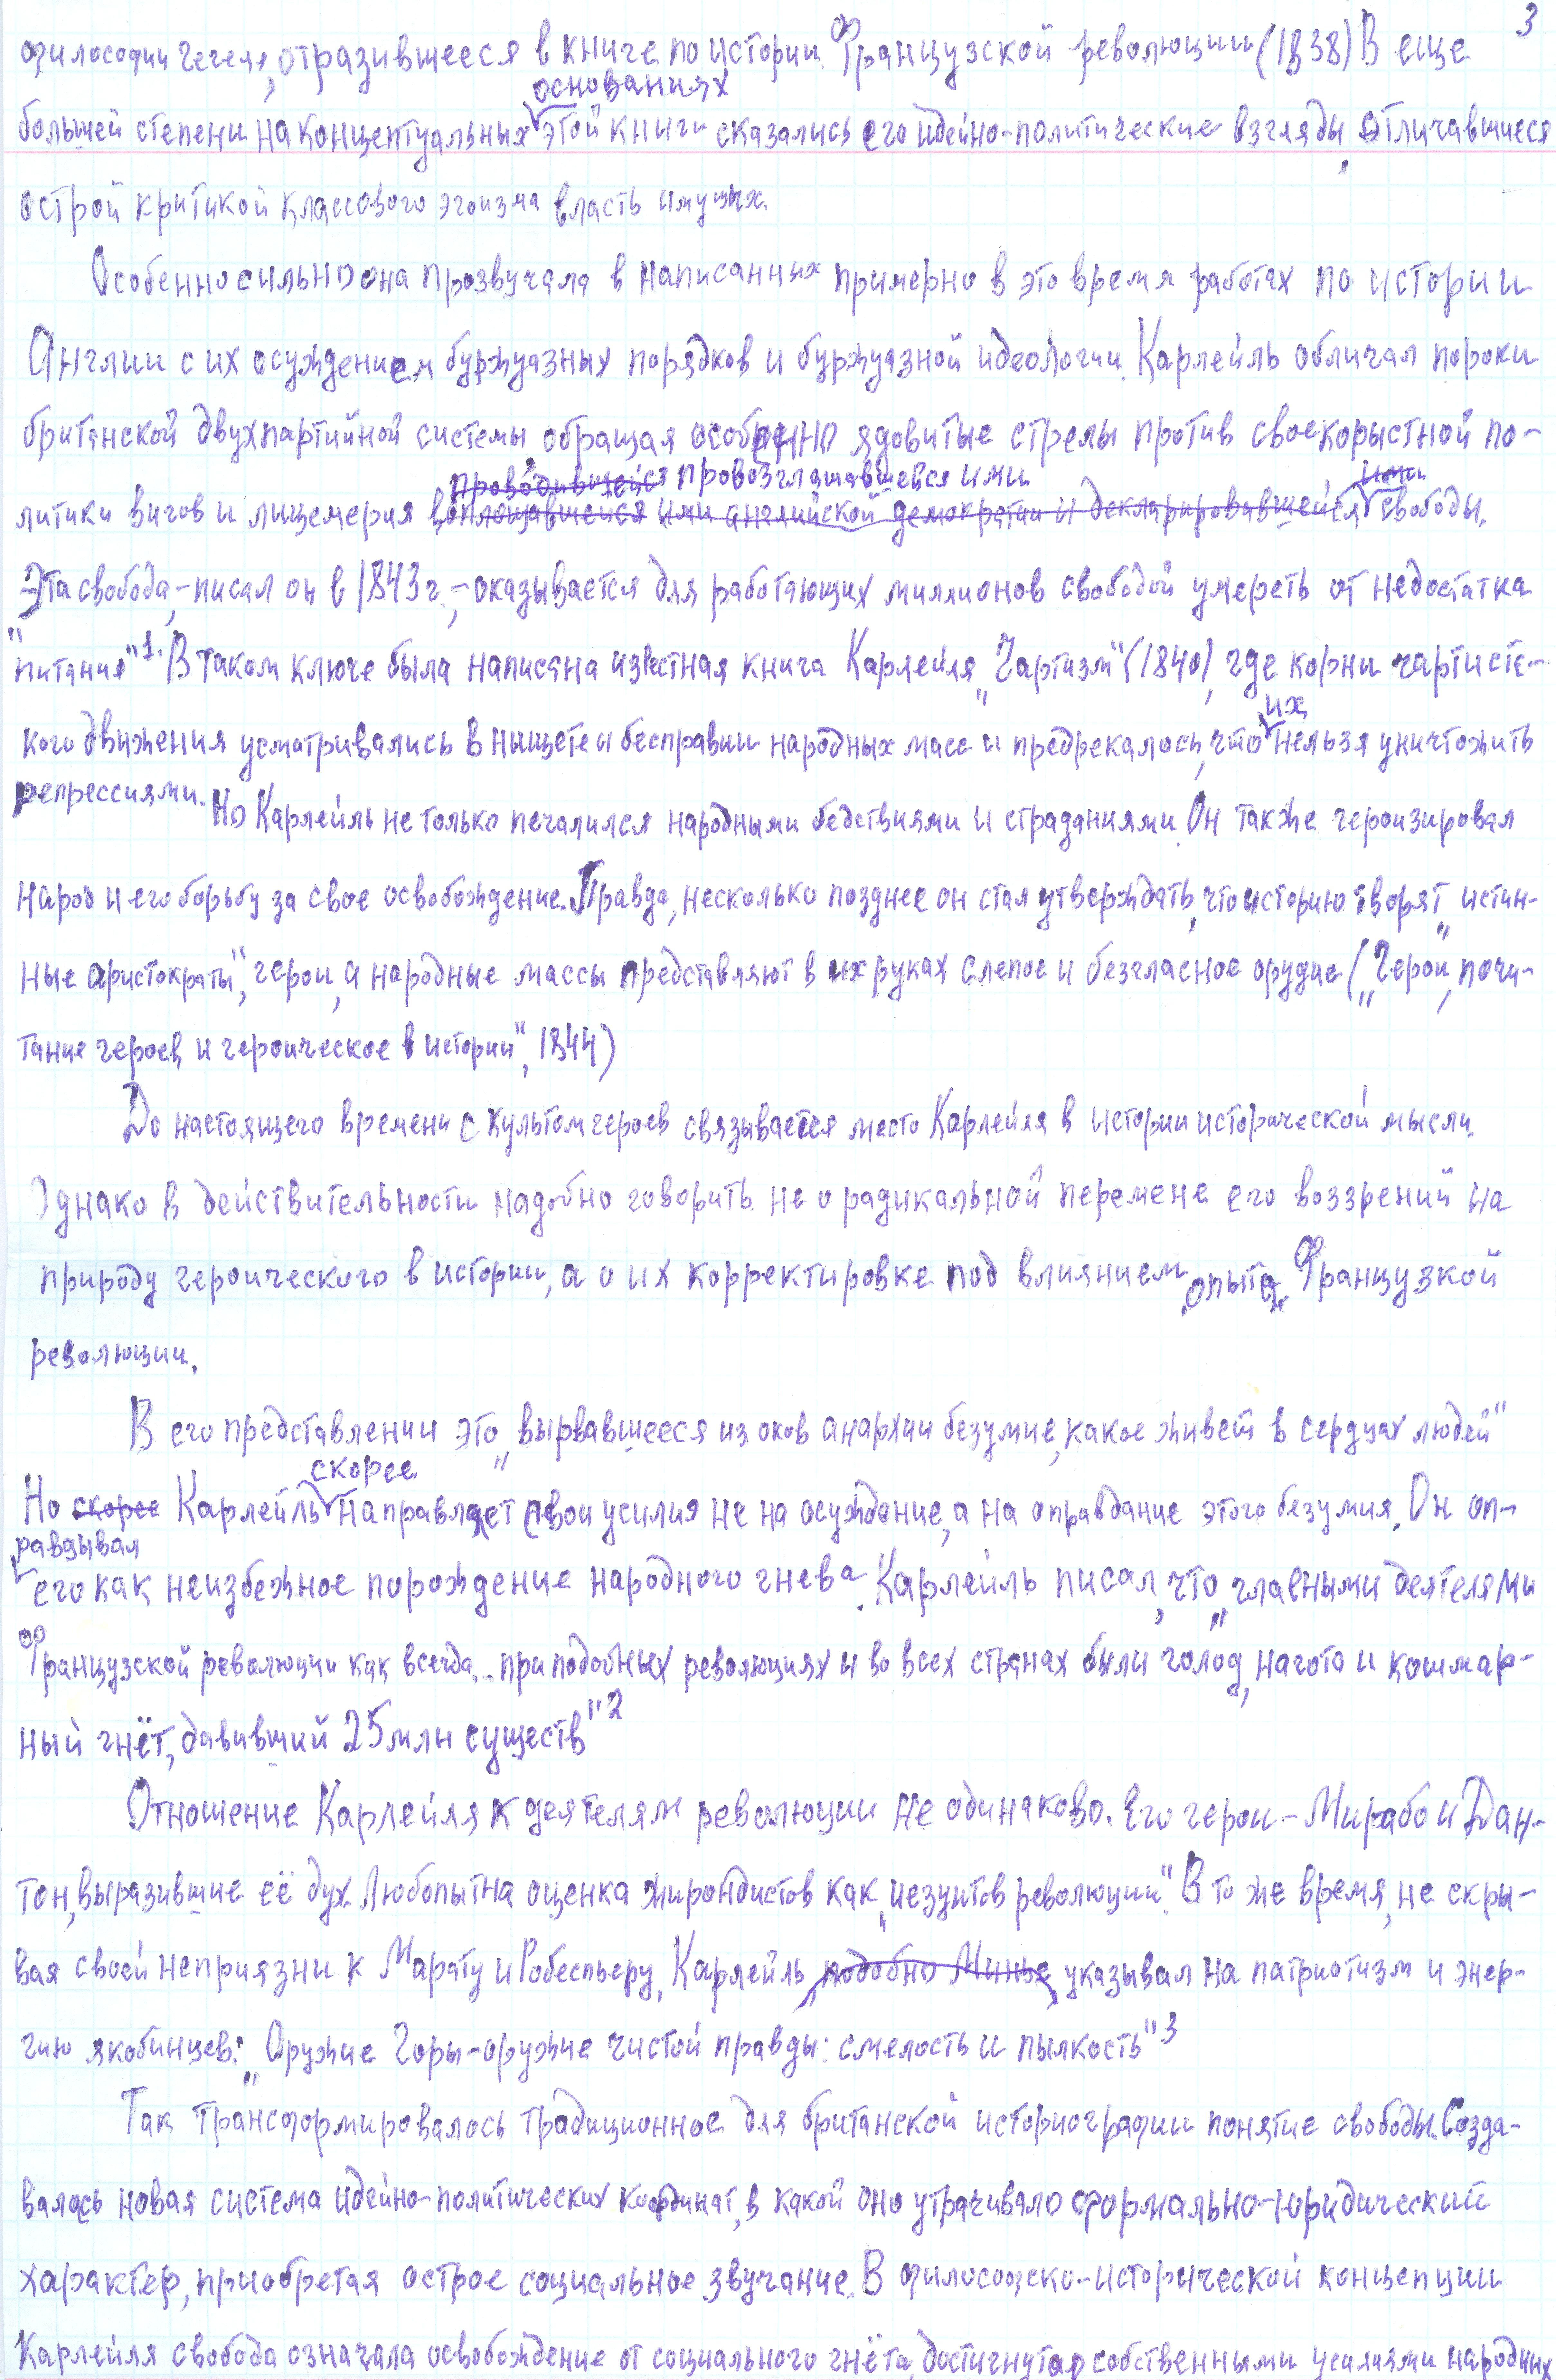 3
философии Гегеля, отразившееся в книге по истории Французской революции (1838) В еще
основаниях
большей степени на концептуальных этой книги сказались его идейно-политические взгляды, отличавшиеся
острой критикой классового эгоизма власть имущих.
Особенно сильно она прозвучала в написанных примерно в это время работах по истории
Англии с их осуждением буржуазных порядков и буржуазной идеологии. Карлейль обличал пороки
британской двухпартийной системы, обращая особенно ядовитые стрелы против своекорыстной по-
проводившейся провозглашавшейся ими ими
литики вигов и лицемерия воплощавшейся ими английской демократии и декларировавшейся свободы.
Эта свобода, - писал он в 1843 г., - оказывается для работающих миллионов свободой умереть от недостатка
"питания"1. В таком ключе была написана известная книга Карлейля „Чартизм" (1840), где корни чартистс-
их
кого движения усматривались в нищете и бесправии народных масс и предрекалось, что нельзя уничтожить
репрессиями.
Но Карлейль не только печалился народными бедствиями и страданиями. Он также героизировал
народ и его борьбу за свое освобождение. Правда, несколько позднее он стал утверждать, что историю творят „истин-
ные аристократы", герои, а народные массы представляют в их руках слепое и безгласное орудие („Герои, почи-
тание героев и героическое в истории", 1844)
До настоящего времени с культом героев связывается место Карлейля в истории исторической мысли.
Однако в действительности надобно говорить не о радикальной перемене его воззрений на
природу героического в истории, а о их корректировке под влиянием опыта Французкой
революции.
В его представлении это „вырвавшееся из оков анархии безумие, какое живет в сердцах людей"
скорее
Но скорее Карлейль направляет свои усилия не на осуждение, а на оправдание этого безумия. Он оп-
равдывал
его как неизбежное порождение народного гнева. Карлейль писал, что „главными деятелями
Французской революции как всегда... при подобных революциях и во всех странах были голод, нагота и кошмар-
ный гнёт, давивший 25 млн существ"2
Отношение Карлейля к деятелям революции не одинаково. Его герои - Мирабо и Дан-
тон, выразившие её дух. Любопытна оценка жирондистов как „иезуитов революции". В то же время, не скры-
вая своей неприязни к Марату и Робеспьеру, Карлейль, подобно Минье, указывал на патриотизм и энер-
гию якобинцев: „Оружие Горы - оружие чистой правды: смелость и пылкость"3
Так трансформировалось традиционное для британской историографии понятие свободы. Созда-
валась новая система идейно-политических координат, в какой оно утрачивало формально-юридический
характер, приобретая острое социальное звучание. В философско-исторической концепции
Карлейля свобода означала освобождение от социального гнёта, достигнутое собственными усилиями народных